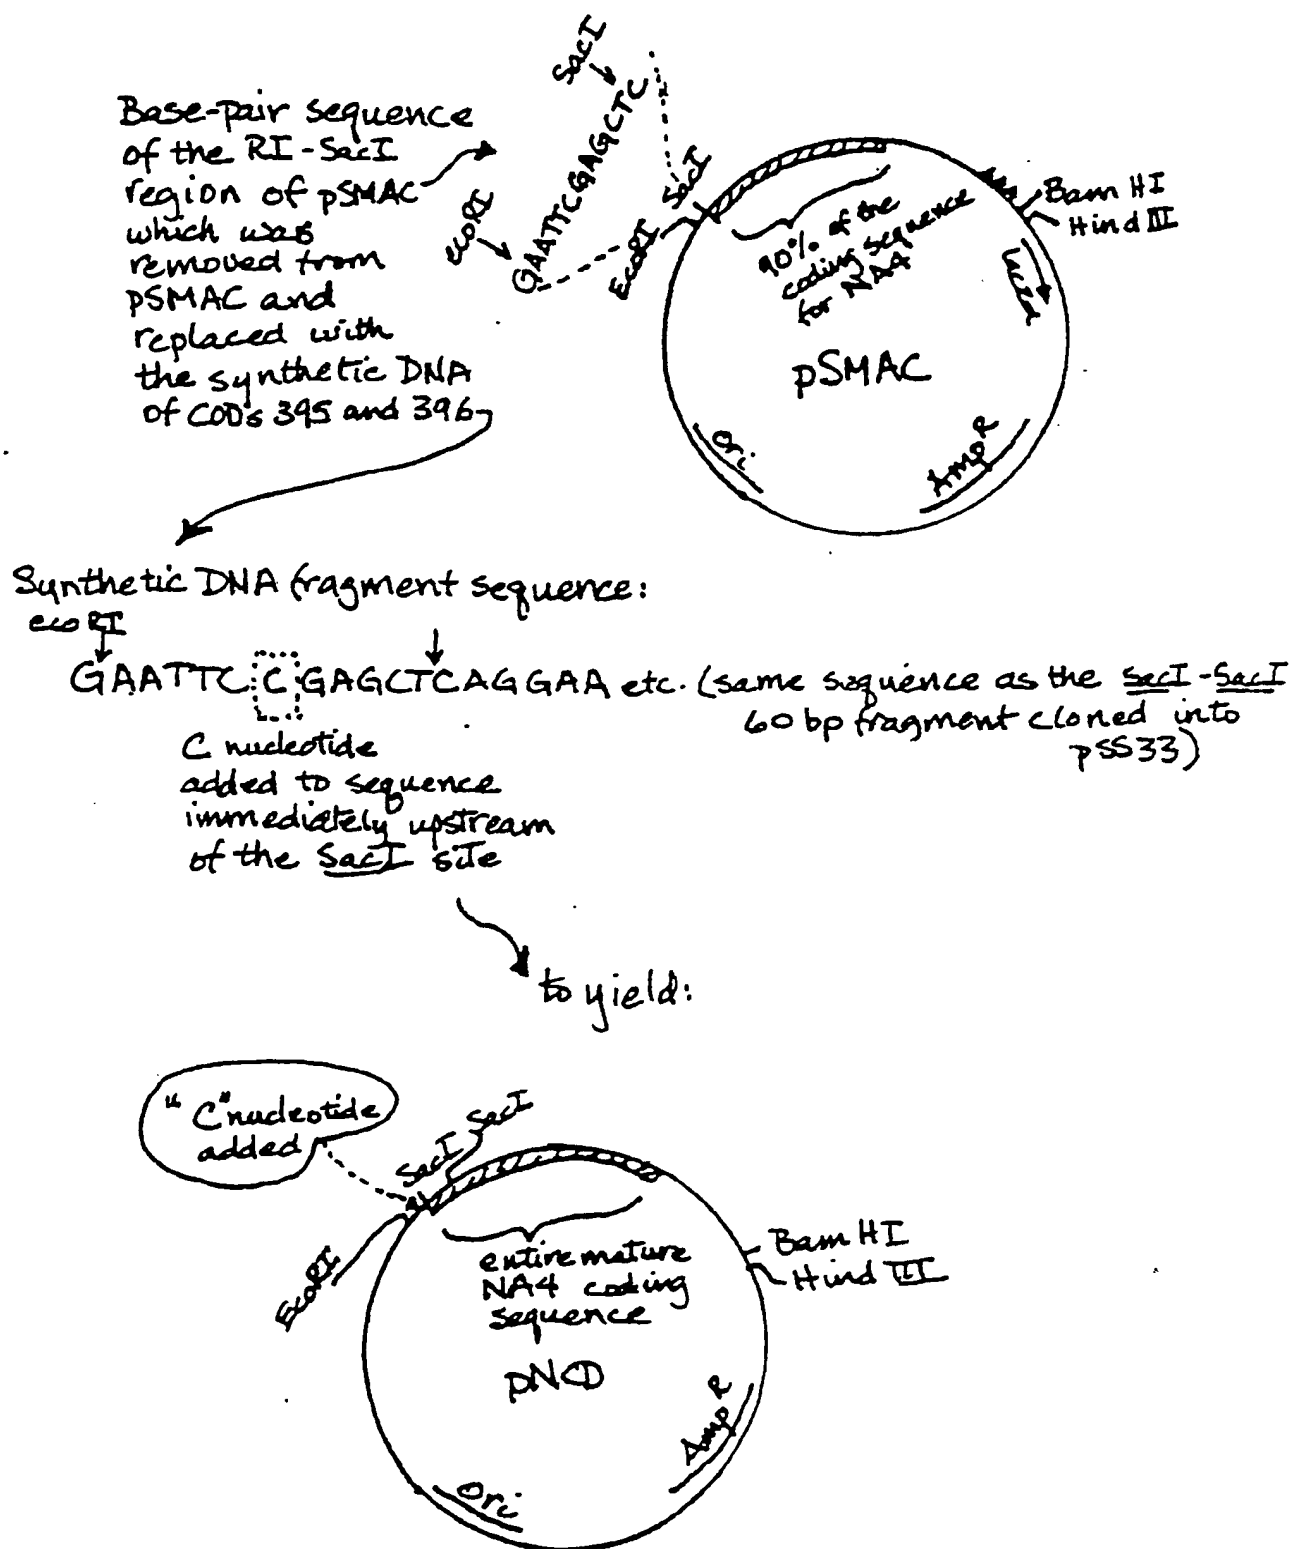 Base-pair sequence
of the RI-SacI
region of pSMAC
which was
removed from
pSMAC and
replaced with
the synthetic DNA
of COD's 395 and 396
SacI
GAATTCGAGCTC
ecoRI
EcoRI
SacI
90% of the
coding sequence
for NA4
Bam HI
Hind III
pSMAC
Ori
AmpR
Synthetic DNA fragment sequence:
ecoRI
GAATTC C GAGCTCAGGAA etc. (same sequence as the SacI-SacI
60 bp fragment cloned into
pSS33)
C nucleotide
added to sequence
immediately upstream
of the SacI site
to yield:
"C" nucleotide
added
SacI
SacI
EcoRI
entire mature
NA4 coding
sequence
Bam HI
Hind III
pNCD
Ori
AmpR